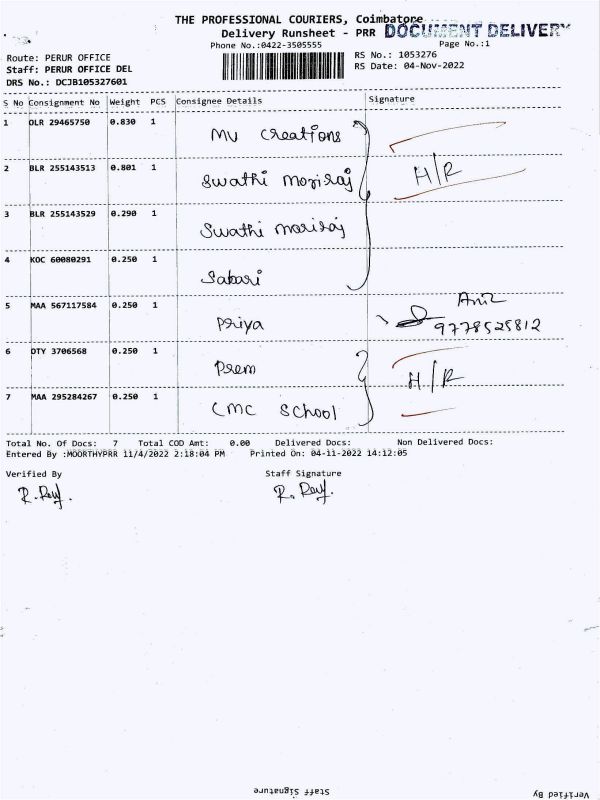 THE PROFESSIONAL COURIERS, Coimbatore
Delivery Runsheet - PRR DOCUMENT DELIVERY
Phone No.:0422-3505555 Page No.:1
Route: PERUR OFFICE RS No.: 1053276
Staff: PERUR OFFICE DEL RS Date: 04-Nov-2022
DRS No.: DCJB105327601
S No Consignment No Weight PCS Consignee Details Signature
1 OLR 29465750 0.830 1 MV Creations
2 BLR 255143513 0.801 1 Swathi Moriraj H/R
3 BLR 255143529 0.290 1 Swathi moriraj
4 KOC 60080291 0.250 1 Sabari
5 MAA 567117584 0.250 1 Priya Anil
9778525812
6 OTY 3706568 0.250 1 Prem H/R
7 MAA 295284267 0.250 1 CMC School
Total No. Of Docs: 7 Total COD Amt: 0.00 Delivered Docs: Non Delivered Docs:
Entered By :MOORTHYPRR 11/4/2022 2:18:04 PM Printed On: 04-11-2022 14:12:05
Verified By Staff Signature
Staff Signature Verified By